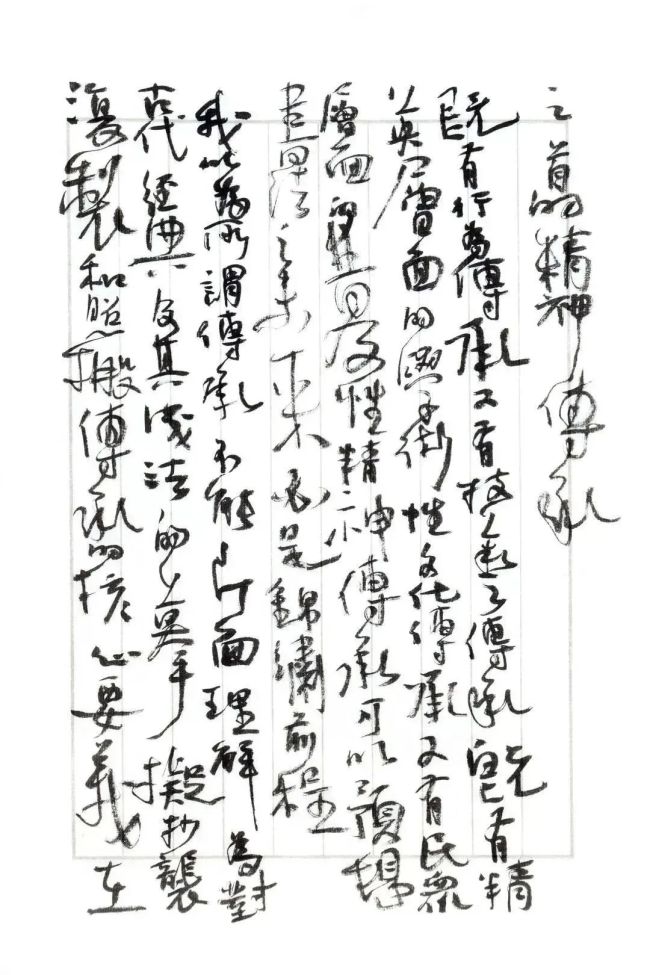 之首的精神傳承
既有行為傳承又有技藝之傳承既有精
英層面的學術性文化傳承又有民眾
層面的普及性精神傳承可以預想
書法之未來必是錦繡前程
我以為所謂傳承不能片面理解為對
古代經典及其法的摹手擬抄襲
復製和照搬傳承的核心要義在